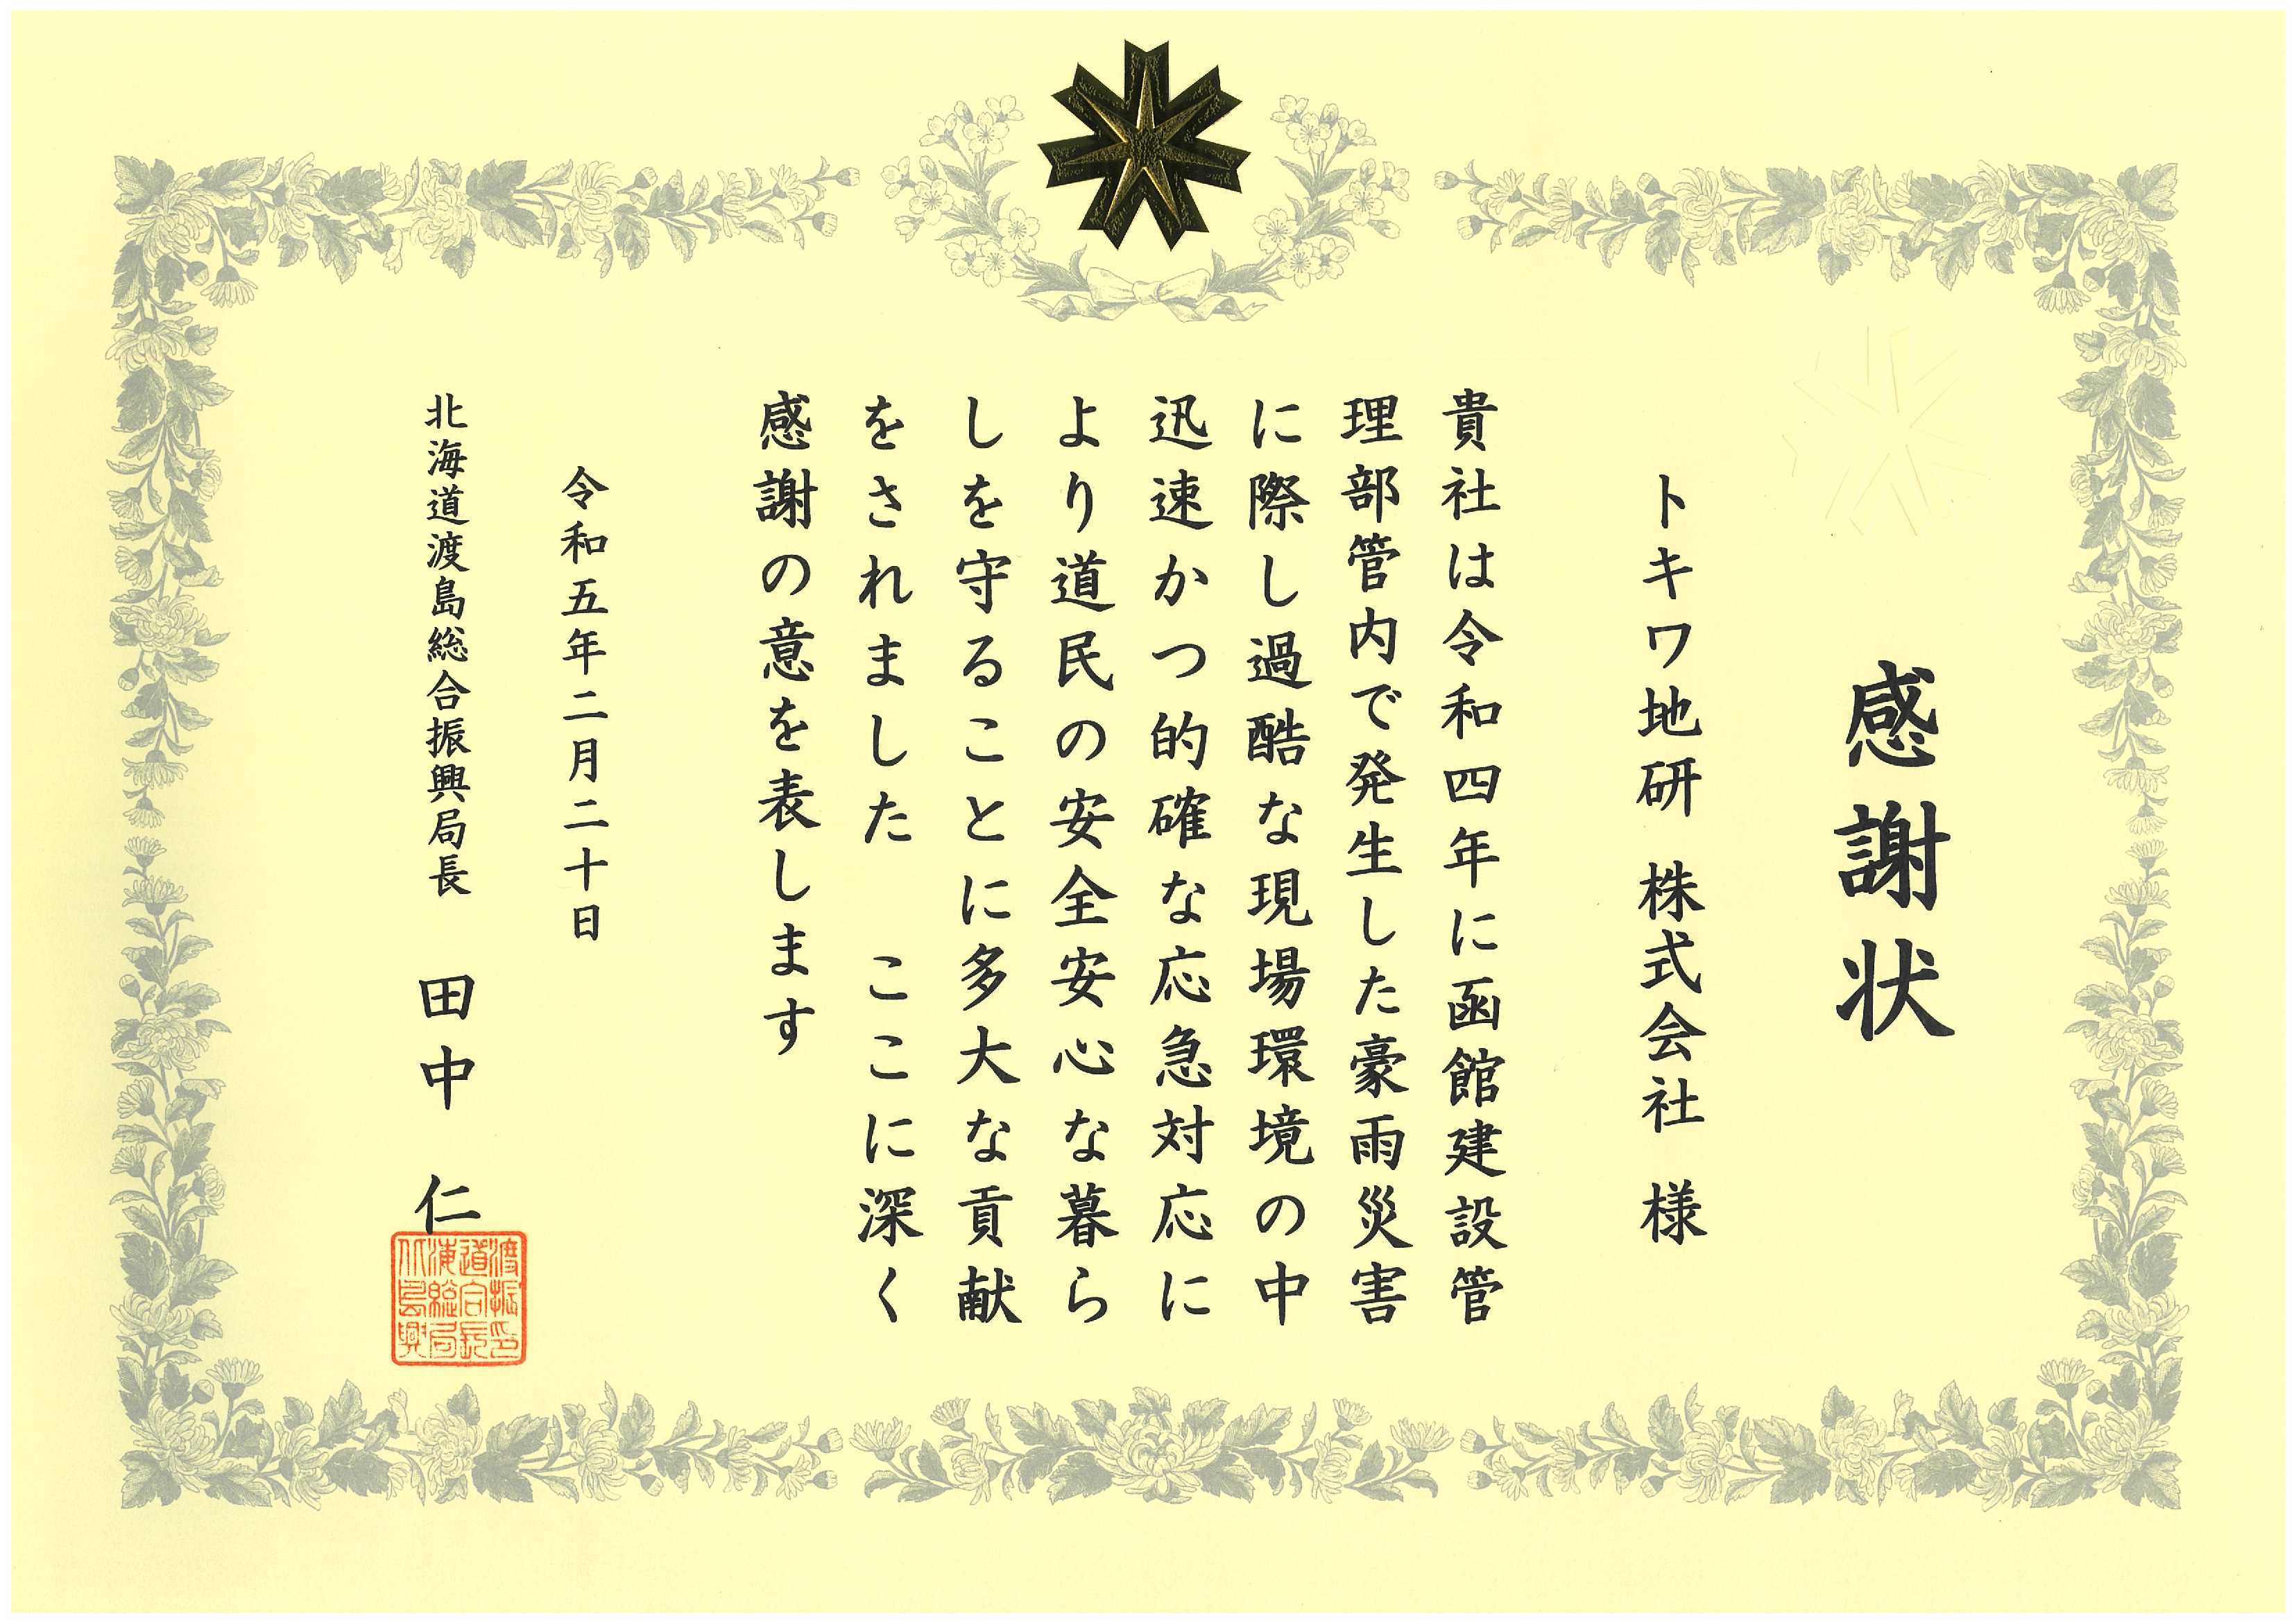 感謝状
トキワ地研 株式会社 様
貴社は令和四年に函館建設管
理部管内で発生した豪雨災害
に際し過酷な現場環境の中
迅速かつ的確な応急対応に
より道民の安全安心な暮ら
しを守ることに多大な貢献
をされました ここに深く
感謝の意を表します
令和五年二月二十日
北海道渡島総合振興局長 田中 仁
北海道渡
島総合振
興局長印